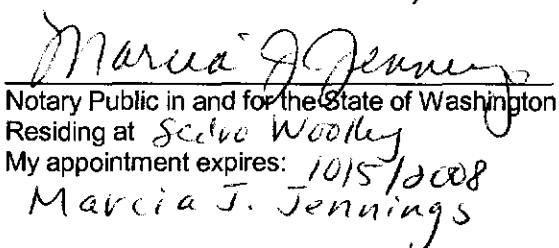 Marcia J. Jennings
Notary Public in and for the State of Washington
Residing at Sedro Woolley
My appointment expires: 10/5/2008
Marcia J. Jennings